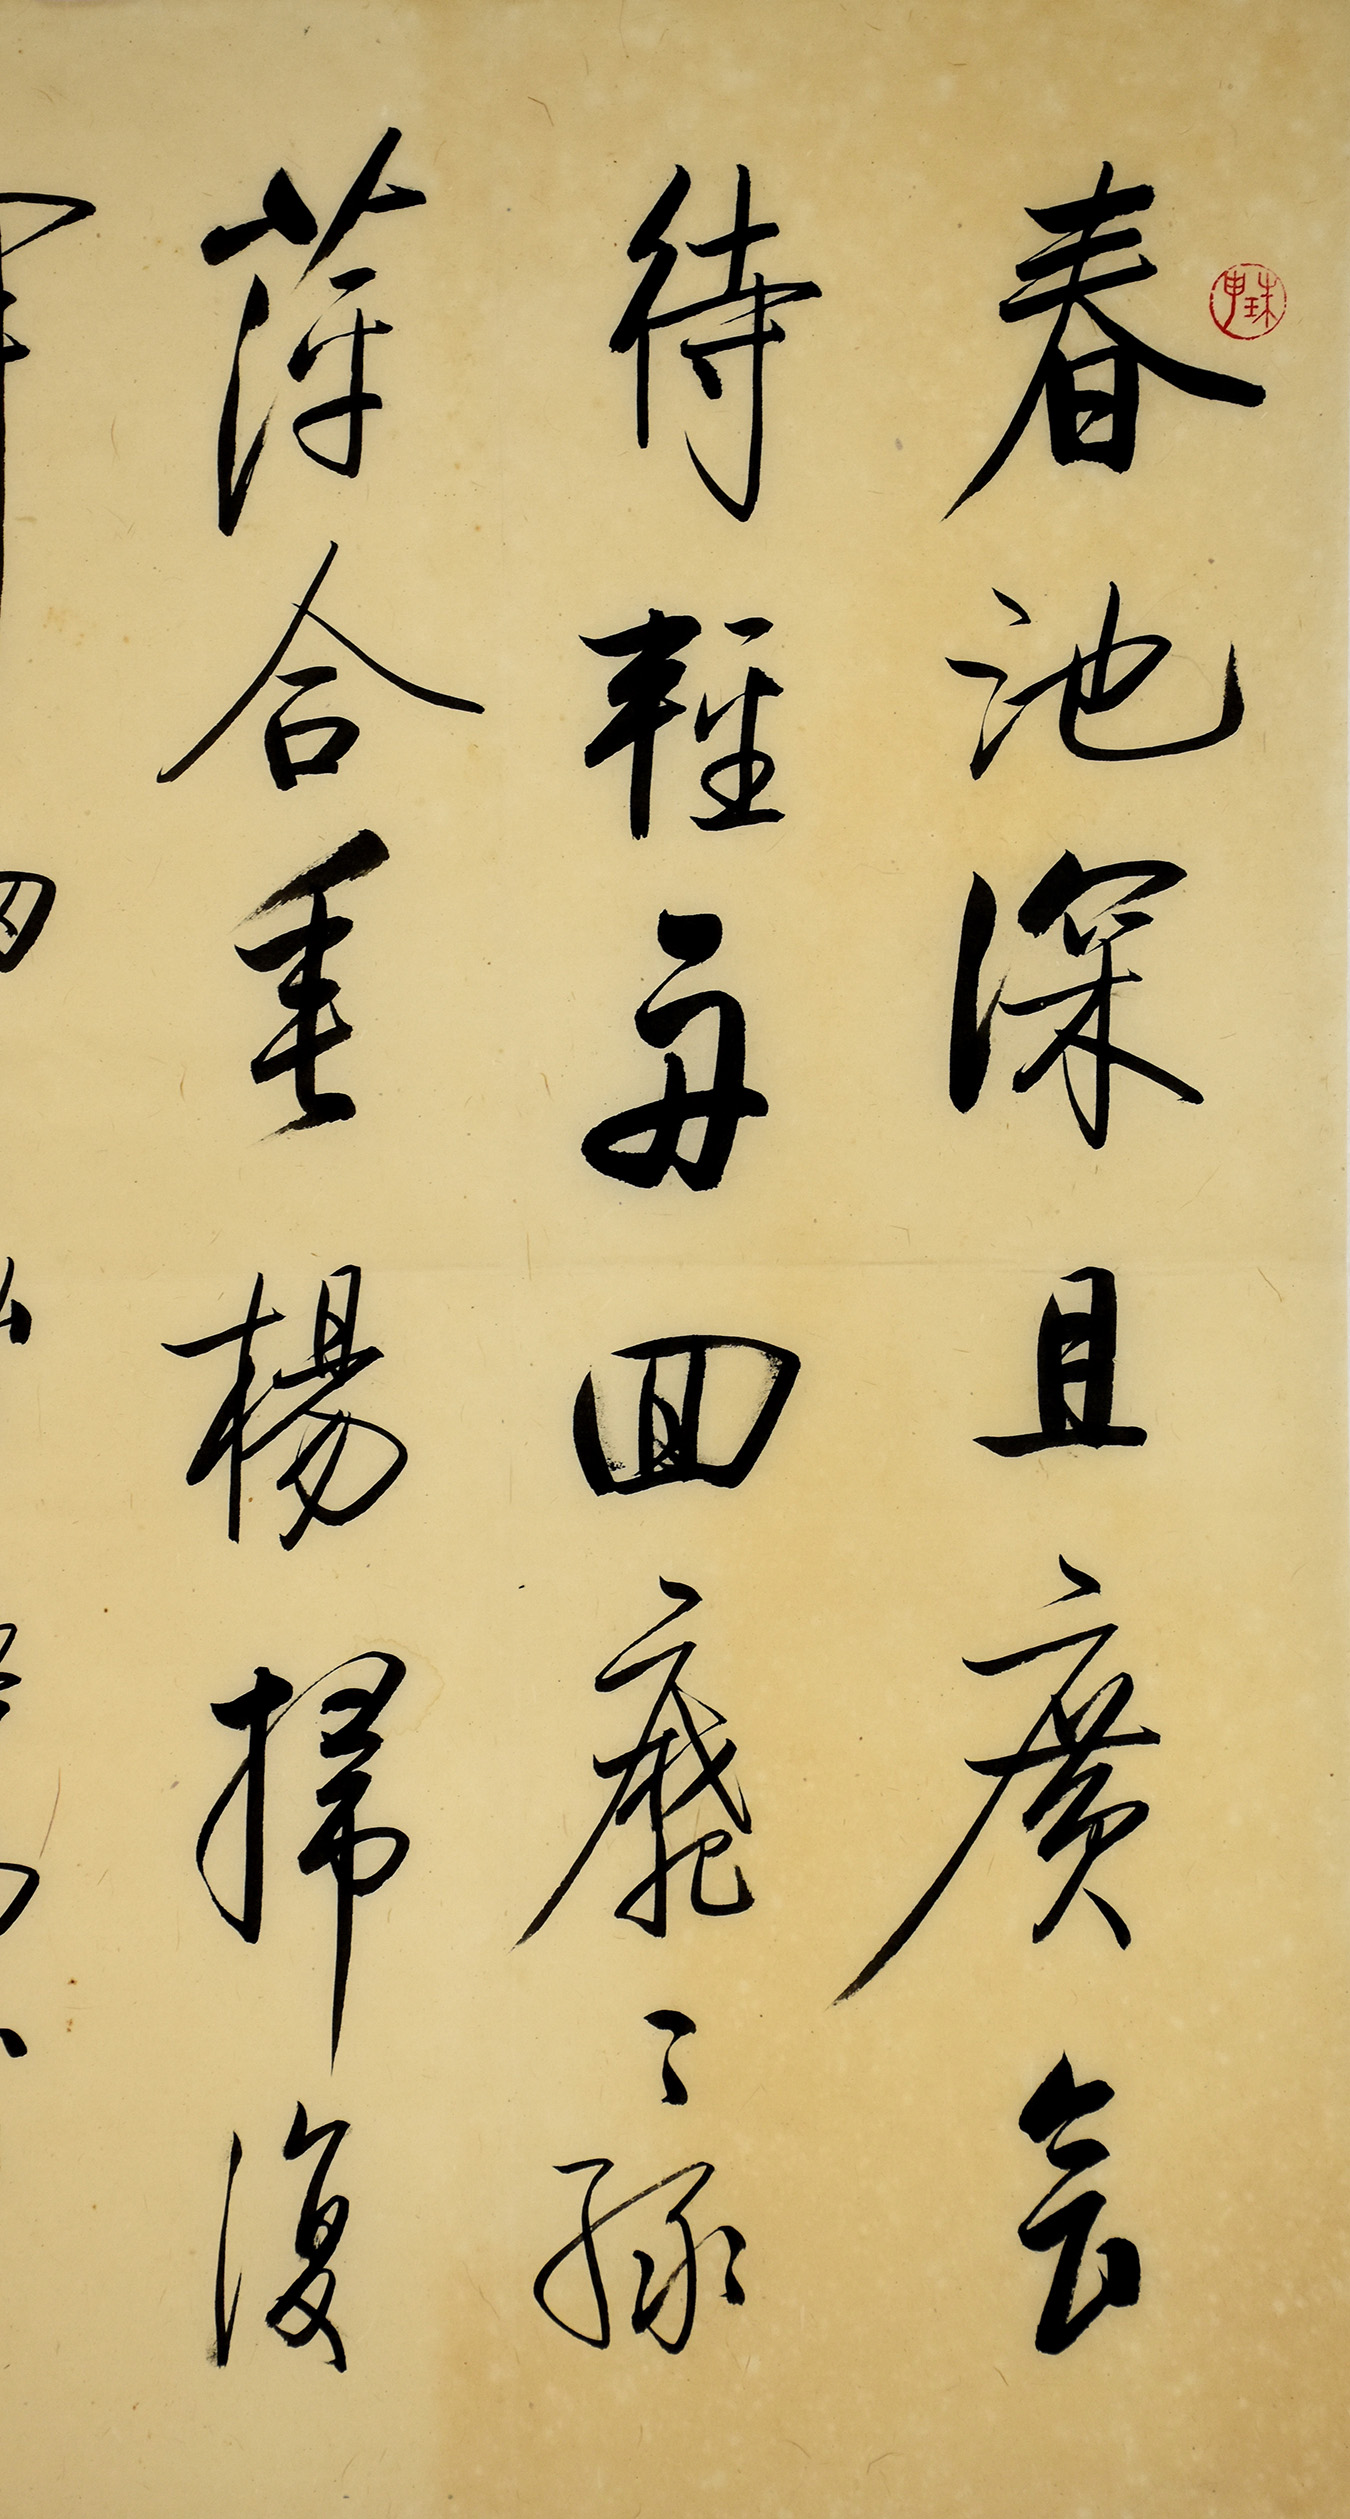 春池深且廣會
待輕舟囬靡〻綠
萍合垂楊掃復